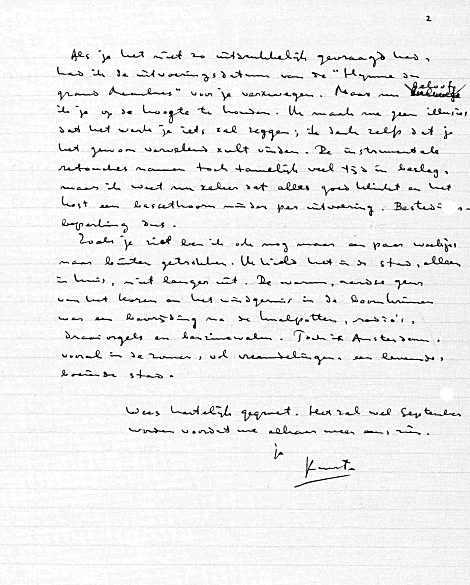 2
Als je het niet zo uitdrukkelijk gevraagd had,
had ik de uitvoeringsdatum van de "Hymne au
grand Meaulnes" voor je verzwegen. Maar nu beloof
ik je op de hoogte te houden. Ik maak me geen illusies
dat het werk je iets zal zeggen; ik denk zelfs dat je
het gewoon vervelend zult vinden. De instrumentale
retouches namen toch tamelijk veel tijd in beslag,
maar ik weet nu zeker dat alles goed klinkt en het
kost een bassethoorn minder per uitvoering.
beperking dus.
Zoals je ziet ben ik ook nog maar een paar weekjes
naar buiten getrokken. Ik hield het in de stad, alleen
in huis, niet langer uit. De warme, aardse geur
van het koren en het windgeruis in de boomkruinen
was een bevrijding na de knalpotten, radio's,
draaiorgels en benzinewalm. Toch is Amsterdam,
vooral in de zomer, vol vreemdelingen, een levende,
boeiende stad.
Wees hartelijk gegroet. Het zal wel September
worden voordat we elkaar weer zien.
je